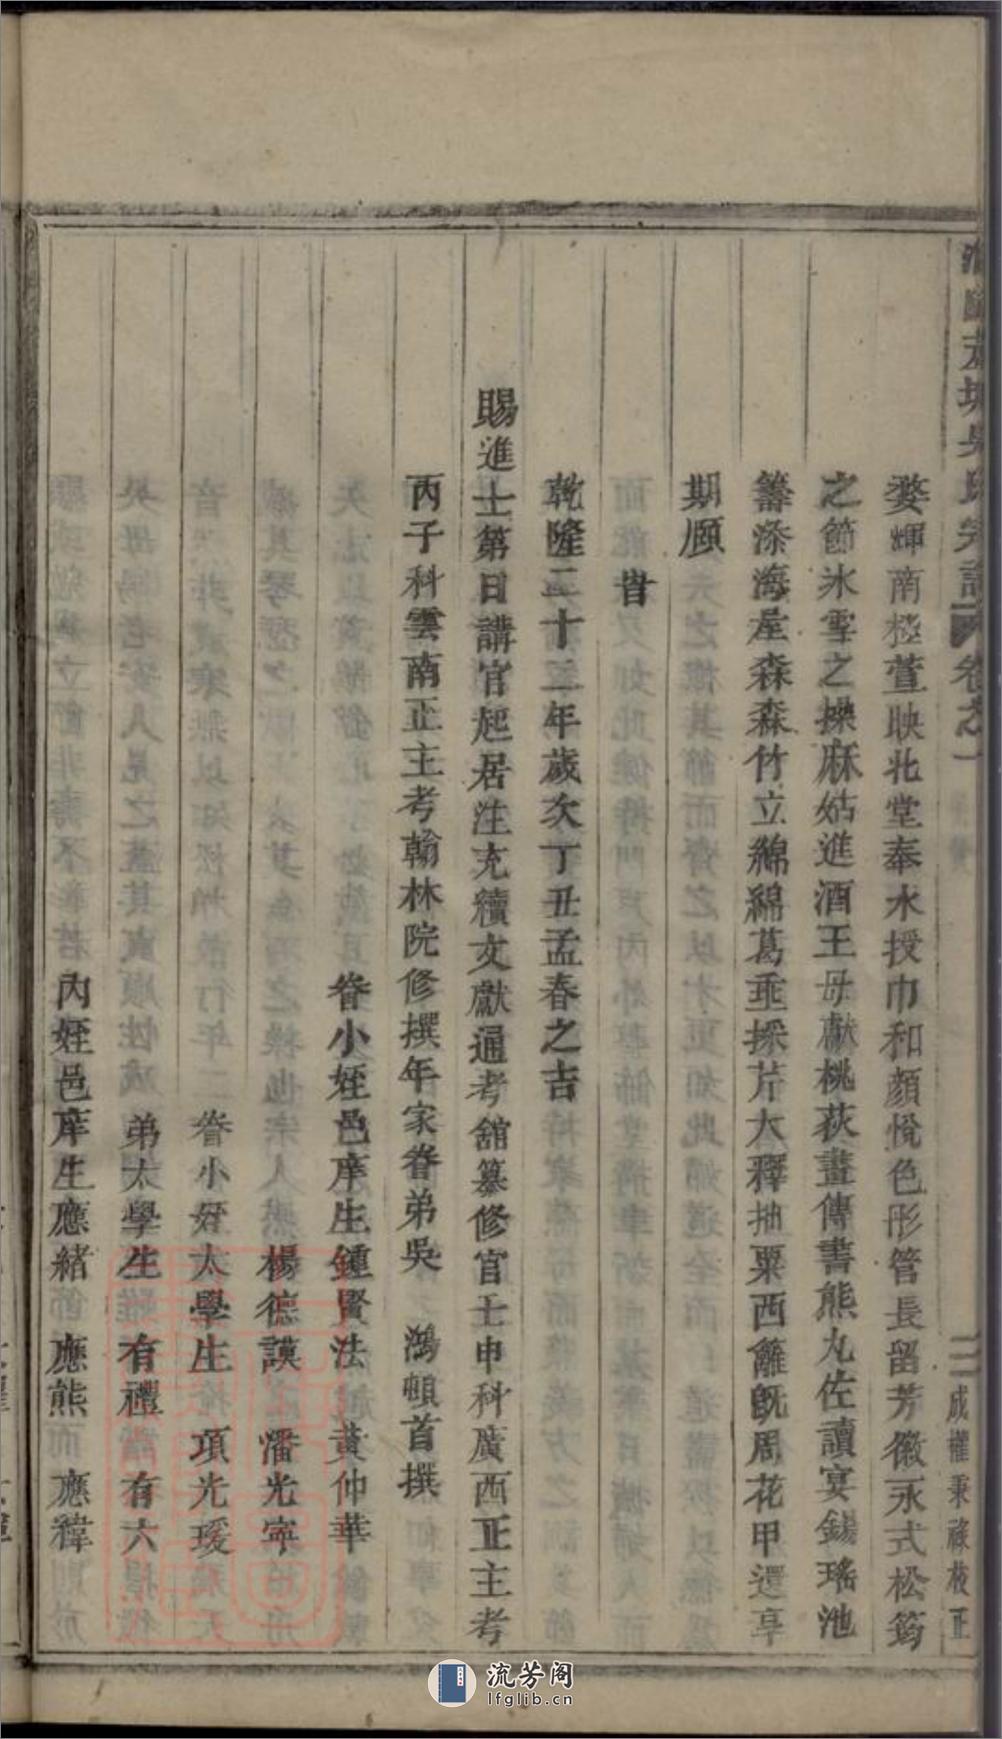 吳氏宗譜 卷之一
婺輝南極萱映北堂奉水授巾和顏悅色彤管長留芳徽永式松筠
之節氷雪之操麻姑進酒王母獻桃荻畫傳書熊丸佐讀宴錫瑤池
籌添海屋森森竹立綿綿葛垂採芹大釋抽粟西雝旣周花甲還享
期頤
旹
乾隆二十二年歲次丁丑孟春之吉
賜進士第日講官起居注充續文獻通考舘纂修官壬申科廣西正主考
丙子科雲南正主考翰林院修撰年家眷弟吳 鴻頓首撰
眷小姪邑庠生鍾賢法 黃仲華
楊德謨 潘光寧
眷小姪太學生 項光瑗
弟太學生 有禮 有六
內姪邑庠生應緒 應熊 應禕
成權秉祿校正
流芳阁
lfglib.cn